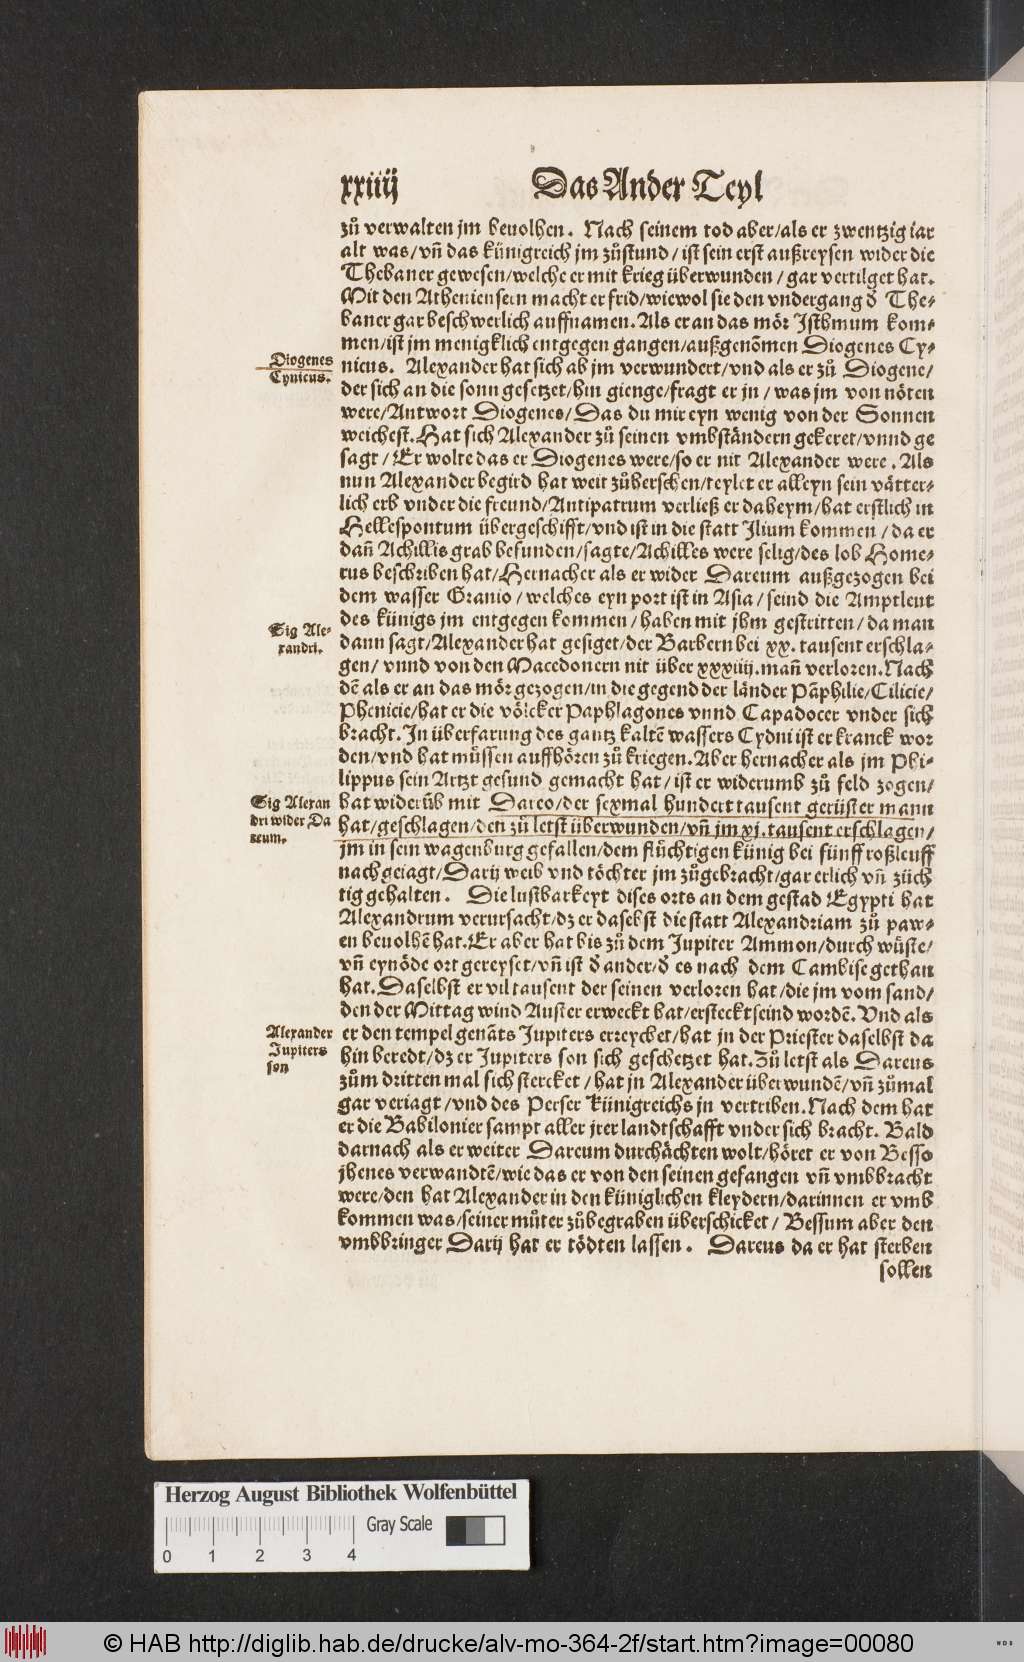 xxiiij Das Ander Teyl
zů verwalten jm beuolhen. Nach seinem tod aber/als er zwentzig iar
alt was/vñ das künigreich jm zůstund/ist sein erst außreysen wider die
Thebaner gewesen/welche er mit krieg überwunden/gar vertilget hat.
Mit den Atheniensern macht er frid/wiewol sie den vndergang d̄ The-
baner gar beschwerlich auffnamen. Als er an das mör Isthmum kom-
men/ist jm menigklich entgegen gangen/außgenõmen Diogenes Cy-
Diogenes
Cynicus.
nicus. Alexander hat sich ab jm verwundert/vnd als er zů Diogene/
der sich an die sonn gesetzet/hin gienge/fragt er jn/was jm von nöten
were/Antwort Diogenes/Das du mir eyn wenig von der Sonnen
weichest. Hat sich Alexander zů seinen vmbständern gekeret/vnnd ge
sagt/Er wolte das er Diogenes were/so er nit Alexander were. Als
nun Alexander begird hat weit zůherschen/teylet er alleyn sein vätter-
lich erb vnder die freund/Antipatrum verließ er daheym/hat erstlich in
Hellespontum übergeschifft/vnd ist in die statt Ilium kommen/da er
dañ Achillis grab befunden/sagte/Achilles were selig/des lob Home-
rus beschriben hat/Hernacher als er wider Dareum außgezogen bei
dem wasser Granio/welches eyn port ist in Asia/seind die Amptleut
des künigs jm entgegen kommen/haben mit jhm gestritten/da man
Sig Ale-
xandri.
dann sagt/Alexander hat gesiget/der Barbern bei xx. tausent erschla-
gen/vnnd von den Macedonern nit über xxxiiij. mañ verloren. Nach
dẽ als er an das mör gezogen/in die gegend der länder Pãphilie/Cilicie/
Phenicie/hat er die völcker Paphlagones vnnd Capadocer vnder sich
bracht. In überfarung des gantz kaltẽ wassers Cydni ist er kranck wor
den/vnd hat můssen auffhören zů kriegen. Aber hernacher als jm Phi-
lippus sein Artzt gesund gemacht hat/ist er widerumb zů feld zogen/
Sig Alexan
dri wider Da
reum.
hat widerũb mit Dareo/der sexmal hundert tausent gerüster mann
hat/geschlagen/den zů letst überwunden/vñ jm xj. tausent erschlagen/
jm in sein wagenburg gefallen/dem flüchtigen künig bei fünff roßleuff
nachgeiagt/Darij weib vnd töchter jm zůgebracht/gar erlich vñ züch
tig gehalten. Die lustbarkeyt dises orts an dem gestad Egypti hat
Alexandrum verursacht/dz er daselbst die statt Alexandriam zů paw-
en beuolhẽ hat. Er aber hat bis zů dem Jupiter Ammon/durch wüste/
vñ eynöde ort gereyset/vñ ist d̄ ander/d̄ es nach dem Cambise gethan
hat. Daselbst er vil tausent der seinen verloren hat/die jm vom sand/
den der Mittag wind Auster erweckt hat/ersteckt seind wordẽ. Vnd als
Alexander
Jupiters
son
er den tempel genãts Jupiters erreychet/hat jn der Priester daselbst da
hin beredt/dz er Jupiters son sich geschetzet hat. Zů letst als Dareus
zům dritten mal sich stercket/hat jn Alexander überwundẽ/vñ zůmal
gar veriagt/vnd des Perser künigreichs jn vertriben. Nach dem hat
er die Babilonier sampt aller jrer landtschafft vnder sich bracht. Bald
darnach als er weiter Dareum durchächten wolt/höret er von Besso
jhenes verwandtẽ/wie das er von den seinen gefangen vñ vmbbracht
were/den hat Alexander in den küniglichen kleydern/darinnen er vmb
kommen was/seiner můter zůbegraben überschicket/Bessum aber den
vmbbringer Darij hat er tödten lassen. Dareus da er hat sterben
sollen
Herzog August Bibliothek Wolfenbüttel
Gray Scale
0 1 2 3 4
© HAB http://diglib.hab.de/drucke/alv-mo-364-2f/start.htm?image=00080